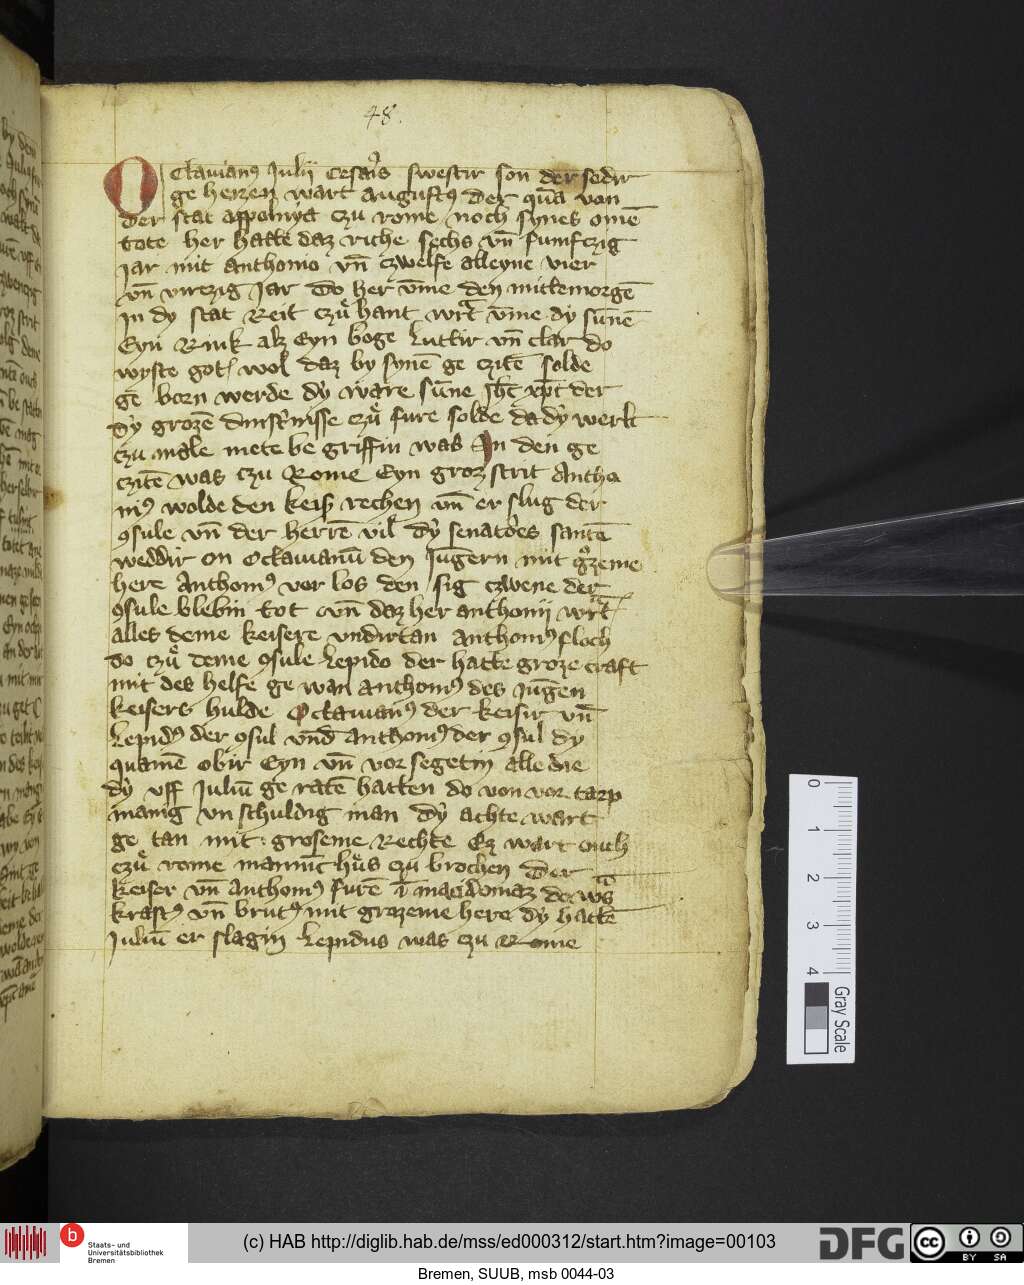 48.
Octauianꝰ Julij cesaris swestir son der sedir
ge herzen wart augustꝰ der quā von
der stat apponiya czu rome noch synes omē
tote her hatte daz riche sechs vn̄ fumfczig
jar mit anthonio vn̄ czwelfe alleyne vier
vn̄ virczig jar do her vm̄e den mittemorgē
In dy stat Reit czuͦhant wart vm̄e dy sun̄e
Eyn Rink alz Eyn boge luttir vn̄ clar do
wyste got wol daz by synē ge czitē solde
ge born werde dy ware sun̄e ihc xpc der
dy grozē dinstirnisse czuͦ fure solde da dy werlt
czu male mete be griffin was In den ge
czitē was czu Rome Eyn groz strit Antho
niꝰ wolde den keisir rechen vn̄ er slug der
ꝯsule vn̄ der herrē vil dy senatores santē
weddir on Octauianū den Jungern mit grozeme
here Anthoniꝰ vor los den sig czwene der
ꝯsule blebin tot vn̄ daz her anthonij wart
alles deme keisere vndirtan Anthoniꝰ floch
do czuͦ deme ꝯsule Lepido der hatte groze craft
mit des helfe ge wan anthoniꝰ des Jungen
keisers hulde Octauianꝰ der keisir vn̄
Lepidꝰ der ꝯsul vnd anthoniꝰ der ꝯsul dy
quamē obir Eyn vn̄ vor segetin alle die
dy vff Juliū ge ratē hatten do von vor tarp
manig vn schuldig man dy achte wart
ge tan mit groseme Rechte Ez wart ouch
czuͦ rome mannic hus czu brochen der
keiser vn̄ anthoniꝰ furē ī macidoniaz do was
krassꝰ vn̄ brutꝰ mit grozeme here dy hattē
Juliū er slagin Lepidus was czu Rome
0 1 2 3 4
Gray Scale
b
Staats- und
Universitätsbibliothek
Bremen
(c) HAB http://diglib.hab.de/mss/ed000312/start.htm?image=00103
DFG
cc BY SA
Bremen, SUUB, msb 0044-03